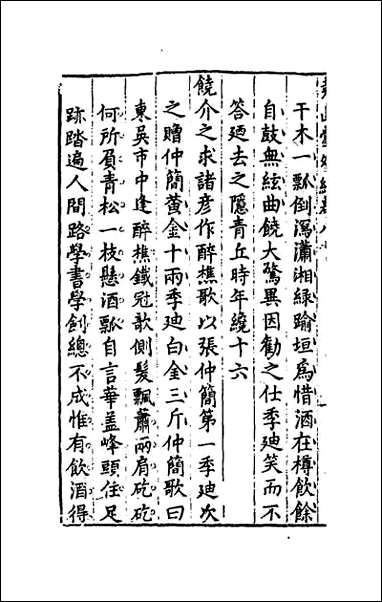 干木一瓢倒瀉瀟湘綠踰垣為惜酒在樽飲餘
自鼓無絃曲饒大驚異因勸之仕季廸笑而不
答廼去之隱青丘時年纔十六
饒介之求諸彥作醉樵歌以張仲簡第一季廸次
之贈仲簡黃金十兩季廸白金三斤仲簡歌曰
東吳市中逢醉樵鐵冠欹側髮飄蕭兩肩矻矻
何所負青松一枝懸酒瓢自言華盖峰頭住足
跡踏遍人間路學書學劍總不成惟有飲酒得